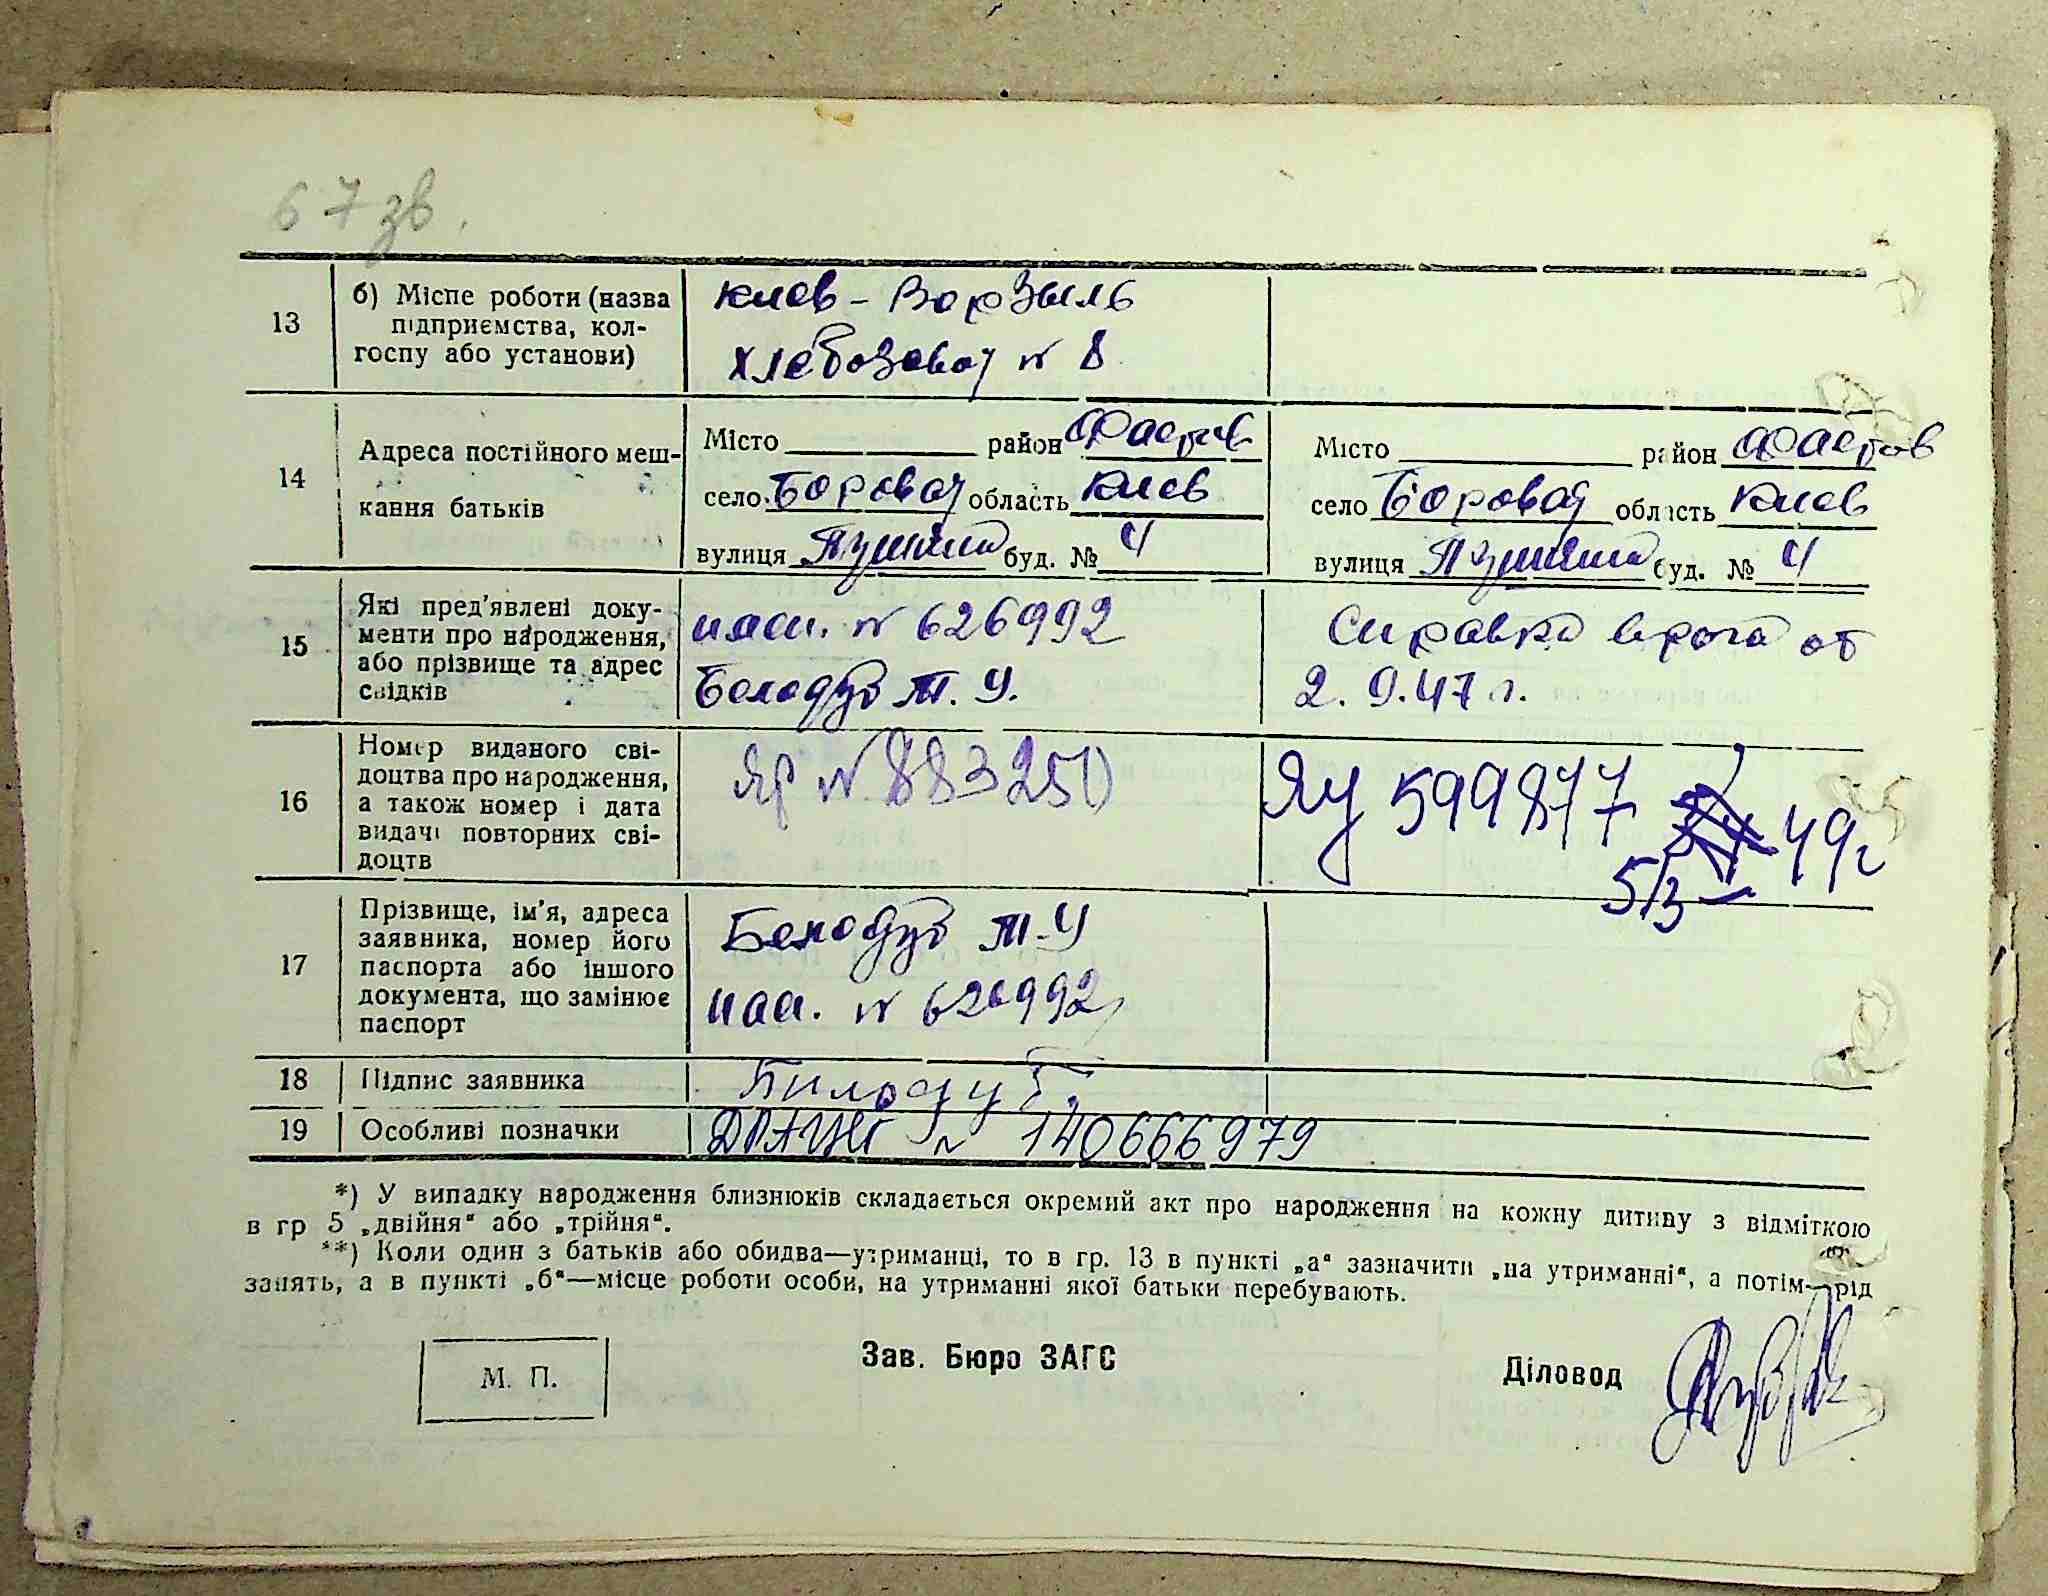 67 зв.
13 б) Місце роботи (назва підприємства, колгоспу або установи)
Киев - Ворзыль
хлебозавод № 8
14 Адреса постійного мешкання батьків
Місто район Фастов
село Боровая область Киев
вулиця буд. № 4
Місто район Фастов
село Боровая область Киев
вулиця буд. № 4
15 Які пред'явлені документи про народження, або прізвище та адрес свідків
пасп. № 626992
Белодуб Т. У.
Справка врача от
2. 9. 47 г.
16 Номер виданого свідоцтва про народження, а також номер і дата видачі повторних свідоцтв
№ 883250
ЯУ 599877 49 г
5/3
17 Прізвище, ім'я, адреса заявника, номер його паспорта або іншого документа, що замінює паспорт
Белодуб Т. У
пасп. № 626992
18 Підпис заявника Билодуб
19 Особливі позначки ДРАЦСГ № 140666979
*) У випадку народження близнюків складається окремий акт про народження на кожну дитину з відміткою
в гр 5 „двійня“ або „трійня“.
**) Коли один з батьків або обидва—утриманці, то в гр. 13 в пункті „а“ зазначити „на утриманні“, а потім—рід
занять, а в пункті „б“—місце роботи особи, на утриманні якої батьки перебувають.
М. П.
Зав. Бюро ЗАГС
Діловод